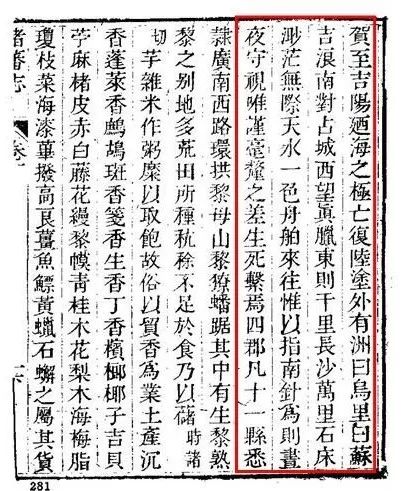 賀至吉陽廼海之極亡復陸塗外有洲曰烏里曰蘇
吉浪南對占城西望真臘東則千里長沙萬里石床
渺茫無際天水一色舟舶來往惟以指南針為則晝
夜守視唯謹毫釐之差生死繫焉四郡凡十一縣悉
隸廣南西路環拱黎母山黎獠蟠踞其中有生黎熟
黎之別地多荒田所種秔稌不足於食乃以藷時諸
切芋雜米作粥糜以取飽故俗以貿香為業土產沉
香蓬萊香鷓鴣斑香箋香生香丁香檳榔椰子吉貝
苧麻楮皮赤白藤花縵黎幙青桂木花梨木海梅脂
瓊枝菜海漆蓽撥高良薑魚鰾黃蠟石蠏之屬其貨
諸蕃志 卷
281